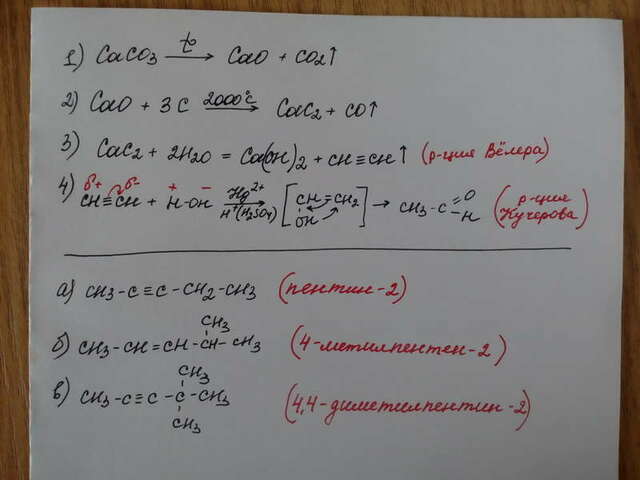 1) CaCO3 —t°→ CaO + CO2↑
2) CaO + 3C —2000°C→ CaC2 + CO↑
3) CaC2 + 2H2O = Ca(OH)2 + CH≡CH↑ (р-ция Вёлера)
4) δ+ δ- CH≡CH + + - H-OH —Hg2+ H+(H2SO4)→ [CH=CH2 OH] → CH3-C=O -H (р-ция Кучерова)
а) CH3-C≡C-CH2-CH3 (пентин-2)
CH3
б) CH3-CH=CH-CH-CH3 (4-метилпентен-2)
CH3
в) CH3-C≡C-C-CH3 (4,4-диметилпентин-2)
CH3